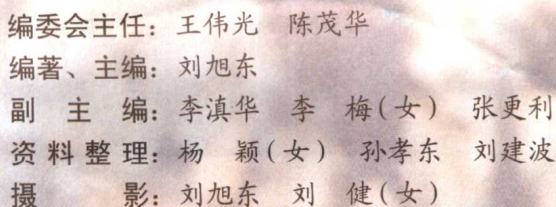 编委会主任：王伟光　陈茂华
编著、主编：刘旭东
副　主　编：李滇华　李　梅（女）　张更利
资 料 整 理：杨　颖（女）　孙孝东　刘建波
摄　　　影：刘旭东　刘　健（女）